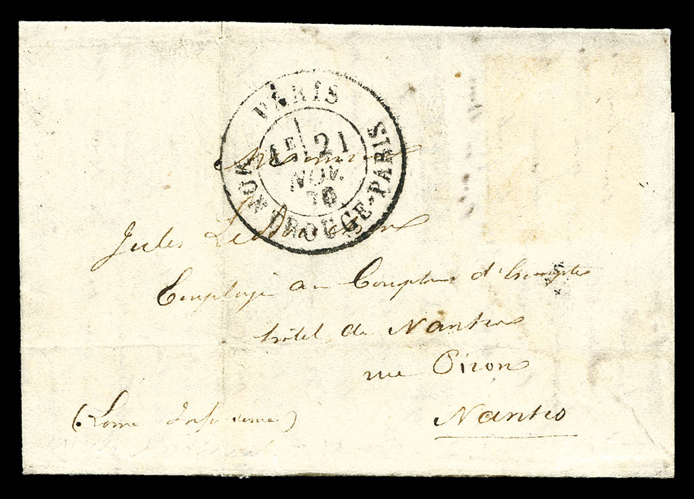 PARIS
1E 21
NOV.
70
MONTROUGE-PARIS
Monsieur
Jules
Employé au Comptoir d'Escompte
hôtel de Nantes
rue Piron
Nantes
(Loire Inférieure)